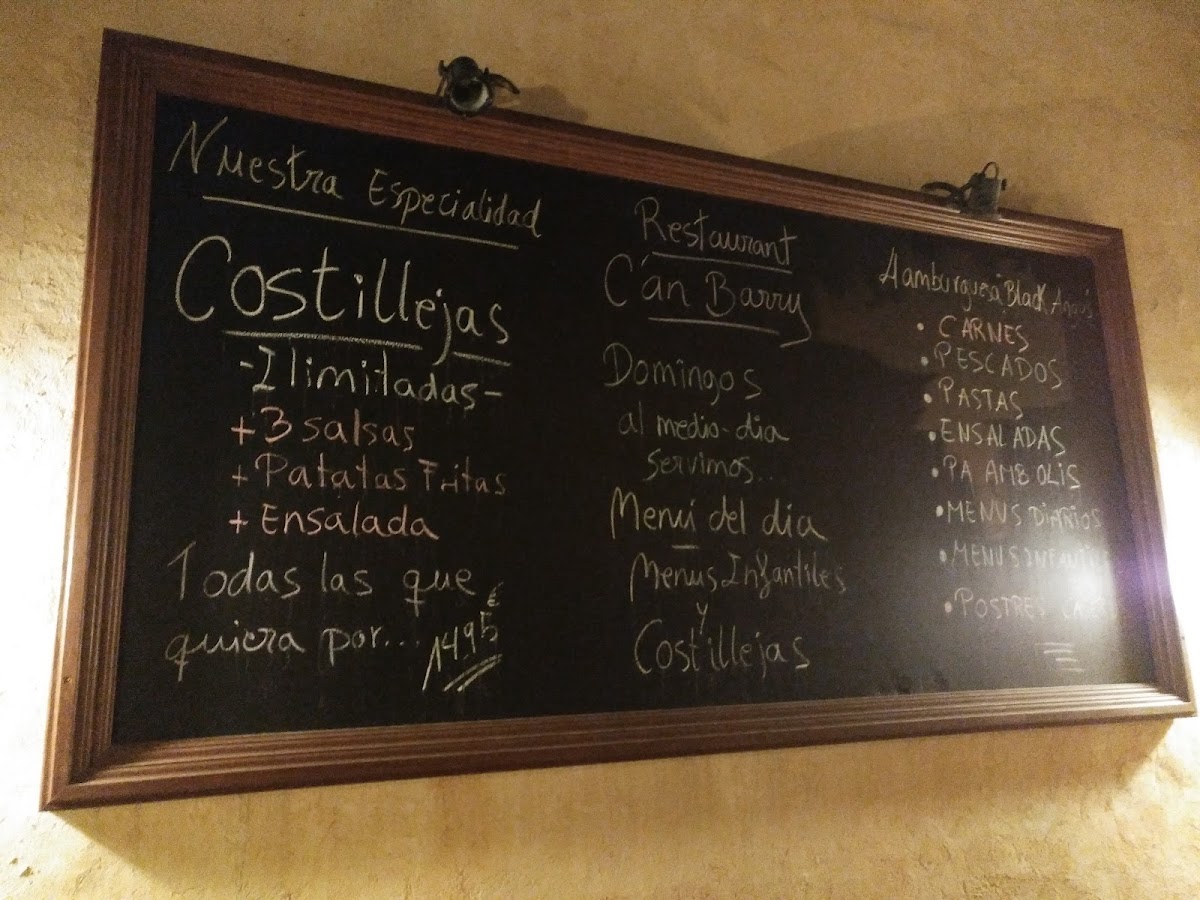 Nuestra Especialidad
Costillejas
-Ilimitadas-
+3 salsas
+Patatas Fritas
+Ensalada
Todas las que
quiera por... 14,95 €
Restaurant
C'an Barry
Domingos
al medio-dia
servimos...
Menú del dia
Menus Infantiles
y
Costillejas
Hamburguesa Black Angus
• CARNES
• PESCADOS
• PASTAS
• ENSALADAS
• PA AMB OLIS
• MENUS DIARIOS
• MENUS
• POSTRES